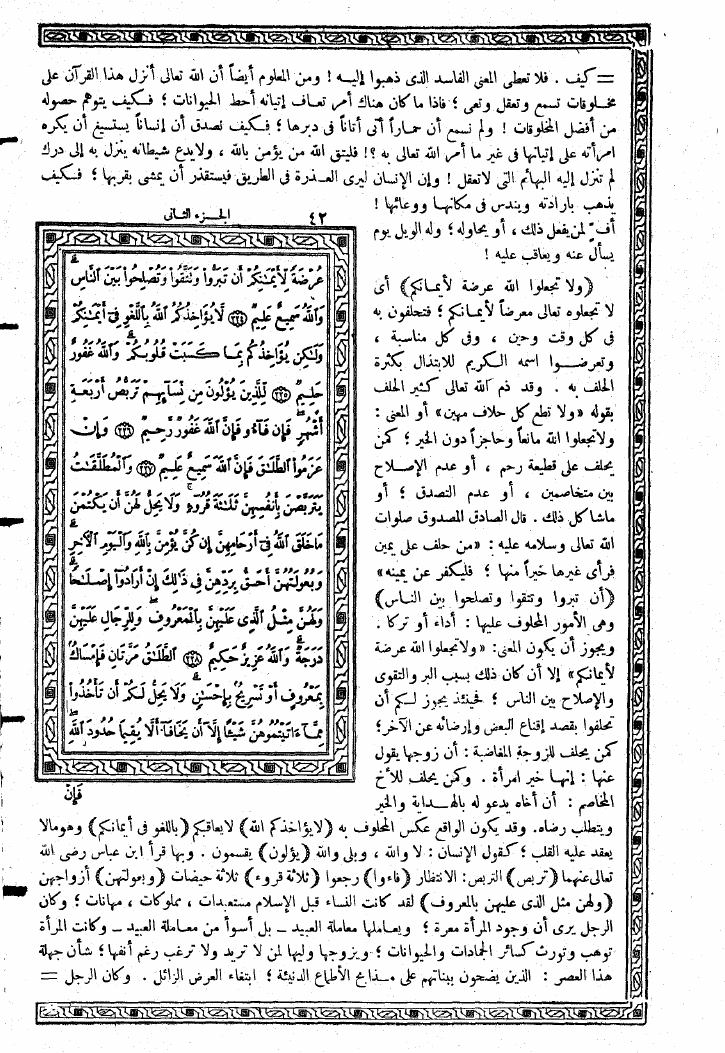 = كيف . فلا تعطى المعنى الفاسد الذى ذهبوا إليه ! ومن المعلوم أيضاً أن الله تعالى أنزل هذا القرآن على
مخلوقات تسمع وتعقل وتعى ؛ فاذا ما كان هناك أمر تعاف إتيانه أحط الحيوانات ؛ فكيف يتوهم حصوله
من أفضل المخلوقات ! ولم نسمع أن حماراً أتى أتاناً فى دبرها ؛ فكيف نصدق أن إنساناً يستسيغ أن يكره
امرأته على إتيانها فى غير ما أمر الله تعالى به ؟! فليتق الله من يؤمن بالله ، ولا يدع شيطانه ينزل به إلى درك
لم تنزل إليه البهائم التى لا تعقل ! وإن الإنسان ليرى العذرة فى الطريق فيستقذر أن يمشى بقربها ؛ فكيف
يذهب بإرادته ويندس فى مكانها ووعائها !
أف لمن يفعل ذلك ، أو يحاوله ؛ وله الويل يوم
يسأل عنه ويعاقب عليه !
(ولا تجعلوا الله عرضة لأيمانكم) أى
لا تجعلوه تعالى معرضاً لأيمانكم ؛ فتحلفون به
فى كل وقت وحين ، وفى كل مناسبة ،
وتعرضوا اسمه الكريم للابتذال بكثرة
الحلف به . وقد ذم الله تعالى كثير الحلف
بقوله «ولا تطع كل حلاف مهين» أو المعنى :
ولا تجعلوا الله مانعاً وحاجزاً دون الخير ؛ كمن
يحلف على قطيعة رحم ، أو عدم الإصلاح
بين متخاصمين ، أو عدم التصدق ؛ أو
ما شاكل ذلك . قال الصادق المصدوق صلوات
الله تعالى وسلامه عليه : «من حلف على يمين
فرأى غيرها خيراً منها ؛ فليكفر عن يمينه»
(أن تبروا وتتقوا وتصلحوا بين الناس)
وهى الأمور المحلوف عليها : أداء أو تركا .
ويجوز أن يكون المعنى : «ولا تجعلوا الله عرضة
لأيمانكم» إلا أن كان ذلك بسبب البر والتقوى
والإصلاح بين الناس ؛ فحينئذ يجوز لكم أن
تحلفوا بقصد إقناع البعض وإرضائه عن الآخر ؛
كمن يحلف للزوجة المغاضبة : أن زوجها يقول
عنها : إنها خير امرأة . وكمن يحلف للأخ
المخاصم : أن أخاه يدعو له بالهداية والخير
ويتطلب رضاه . وقد يكون الواقع عكس المحلوف به (لا يؤاخذكم الله) لا يعاقبكم (باللغو فى أيمانكم) وهو مالا
يعقد عليه القلب ؛ كقول الإنسان : لا والله ، وبلى والله (يؤلون) يقسمون . وبها قرأ ابن عباس رضى الله
تعالى عنهما (تربص) التربص : الانتظار (فاءوا) رجعوا (ثلاثة قروء) ثلاثة حيضات (وبعولتهن) أزواجهن
(ولهن مثل الذى عليهن بالمعروف) لقد كانت النساء قبل الإسلام مستعبدات ، مملوكات ، مهانات ؛ وكان
الرجل يرى أن وجود المرأة معرة ؛ ويعاملها معاملة العبيد ــ بل أسوأ من معاملة العبيد ــ وكانت المرأة
توهب وتورث كسائر الجمادات والحيوانات ؛ ويزوجها وليها لمن لا تريد ولا ترغب رغم أنفها ؛ شأن جهلة
هذا العصر : الذين يضحون ببناتهم على مذابح الأطماع الدنيئة ؛ ابتغاء العرض الزائل . وكان الرجل =
٤٢ الجزء الثانى
عُرْضَةً لِأَيْمَٰنِكُمْ أَن تَبَرُّوا۟ وَتَتَّقُوا۟ وَتُصْلِحُوا۟ بَيْنَ ٱلنَّاسِ ۗ
وَٱللَّهُ سَمِيعٌ عَلِيمٌ ﴿٢٢٤﴾ لَّا يُؤَاخِذُكُمُ ٱللَّهُ بِٱللَّغْوِ فِىٓ أَيْمَٰنِكُمْ
وَلَٰكِن يُؤَاخِذُكُم بِمَا كَسَبَتْ قُلُوبُكُمْ ۗ وَٱللَّهُ غَفُورٌ
حَلِيمٌ ﴿٢٢٥﴾ لِّلَّذِينَ يُؤْلُونَ مِن نِّسَآئِهِمْ تَرَبُّصُ أَرْبَعَةِ
أَشْهُرٍ ۖ فَإِن فَآءُو فَإِنَّ ٱللَّهَ غَفُورٌ رَّحِيمٌ ﴿٢٢٦﴾ وَإِنْ
عَزَمُوا۟ ٱلطَّلَٰقَ فَإِنَّ ٱللَّهَ سَمِيعٌ عَلِيمٌ ﴿٢٢٧﴾ وَٱلْمُطَلَّقَٰتُ
يَتَرَبَّصْنَ بِأَنفُسِهِنَّ ثَلَٰثَةَ قُرُوٓءٍ ۚ وَلَا يَحِلُّ لَهُنَّ أَن يَكْتُمْنَ
مَا خَلَقَ ٱللَّهُ فِىٓ أَرْحَامِهِنَّ إِن كُنَّ يُؤْمِنَّ بِٱللَّهِ وَٱلْيَوْمِ ٱلْآخِرِ ۚ
وَبُعُولَتُهُنَّ أَحَقُّ بِرَدِّهِنَّ فِى ذَٰلِكَ إِنْ أَرَادُوٓا۟ إِصْلَٰحًا ۚ
وَلَهُنَّ مِثْلُ ٱلَّذِى عَلَيْهِنَّ بِٱلْمَعْرُوفِ ۚ وَلِلرِّجَالِ عَلَيْهِنَّ
دَرَجَةٌ ۗ وَٱللَّهُ عَزِيزٌ حَكِيمٌ ﴿٢٢٨﴾ ٱلطَّلَٰقُ مَرَّتَانِ ۖ فَإِمْسَاكٌۢ
بِمَعْرُوفٍ أَوْ تَسْرِيحٌۢ بِإِحْسَٰنٍ ۗ وَلَا يَحِلُّ لَكُمْ أَن تَأْخُذُوا۟
مِمَّآ ءَاتَيْتُمُوهُنَّ شَيْـًٔا إِلَّآ أَن يَخَافَآ أَلَّا يُقِيمَا حُدُودَ ٱللَّهِ ۖ
فَإِنْ